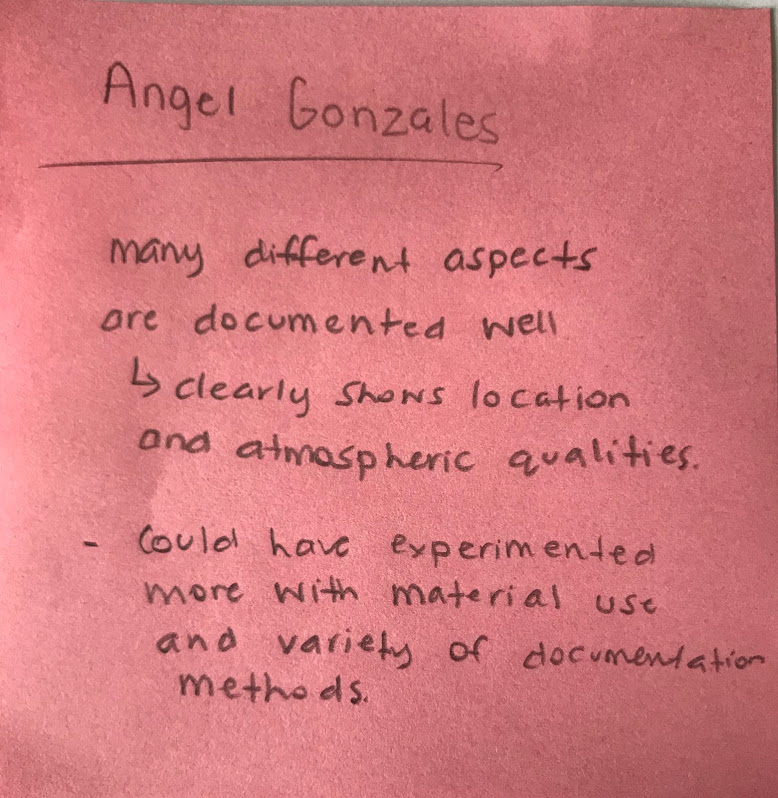 Angel Gonzales
many different aspects
are documented well
↳ clearly shows location
and atmospheric qualities.
- Could have experimented
more with material use
and variety of documentation
methods.